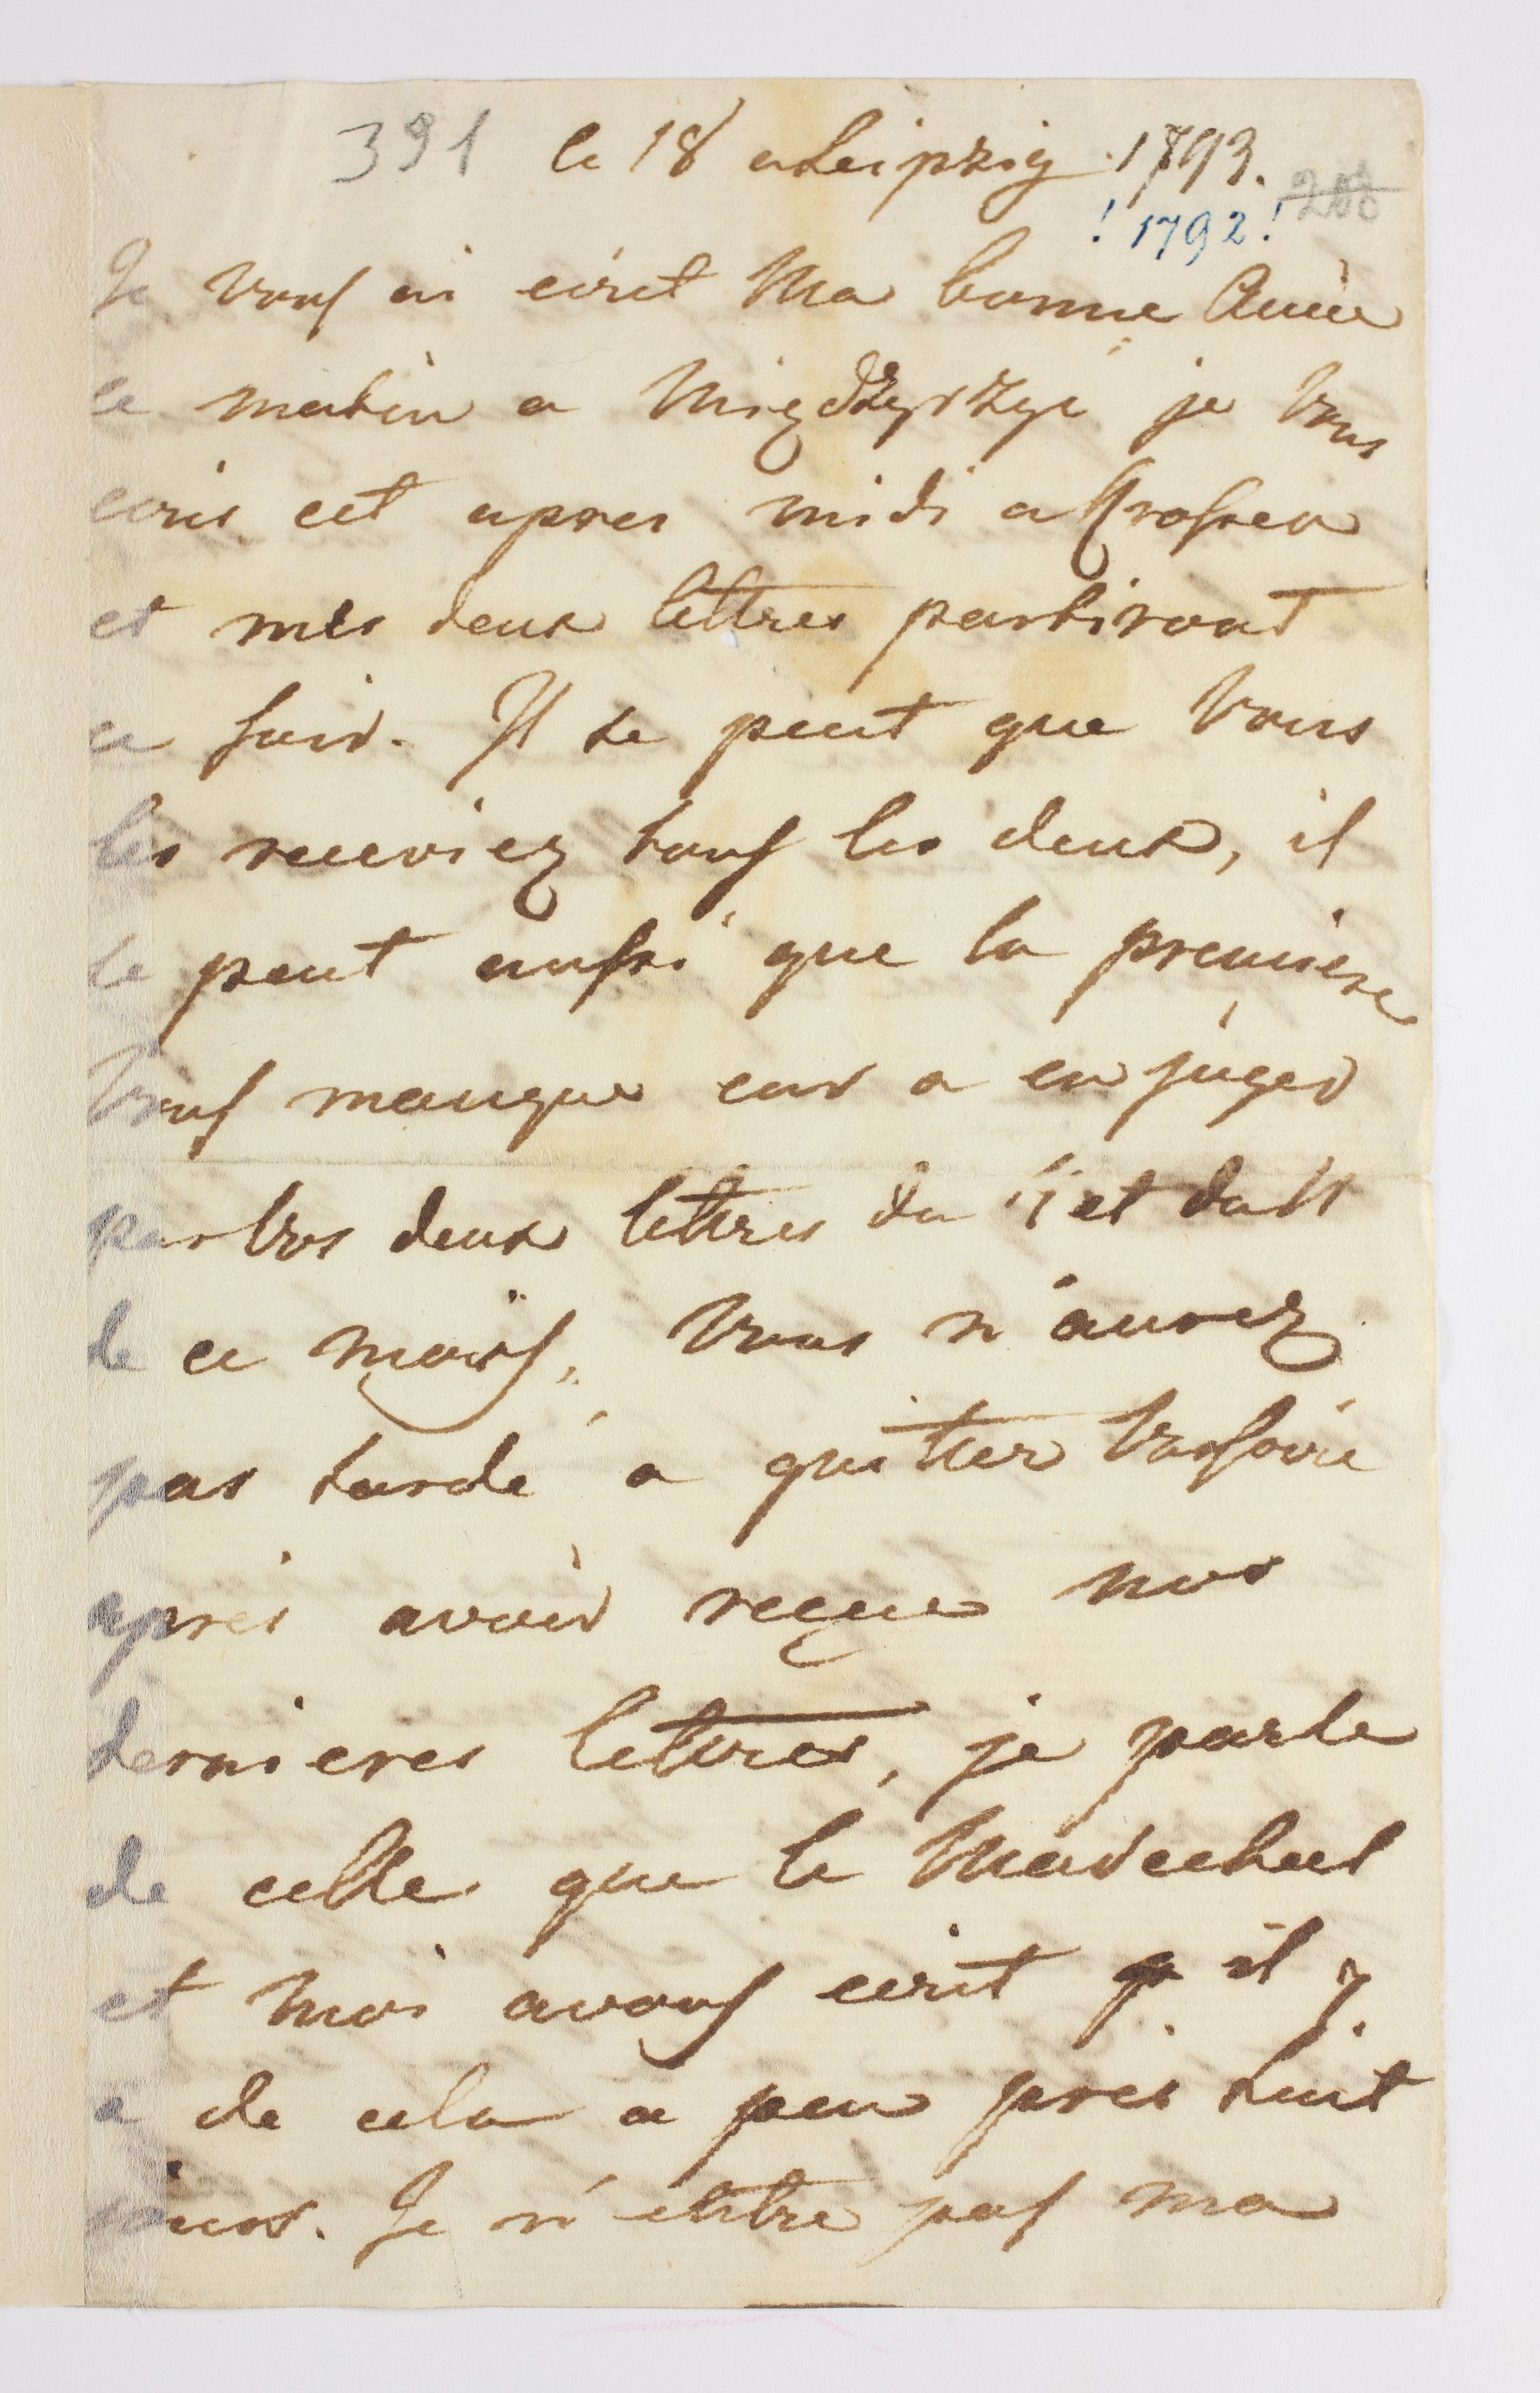 391 le 18 a Leipzig 1793.
! 1792! 208
Je vous ai ecrit Ma bonne Amie
ce matin a Międzyrzyc je vous
ecris cet apres midi a Krossen
et mes deux lettres partiront
ce soir. Il se peut que vous
les receviez tous les deux, il
se peut aussi que la premiere
vous manque car a en juger
par vos deux lettres du et du 11
de ce mois, vous n'aurez
pas tardé a quitter Varsovie
apres avoir reçue nos
dernieres lettres, je parle
de celle que le Marechal
et moi avons ecrit il y
a de cela a peu pres huit
jours. Je n'entre pas ma